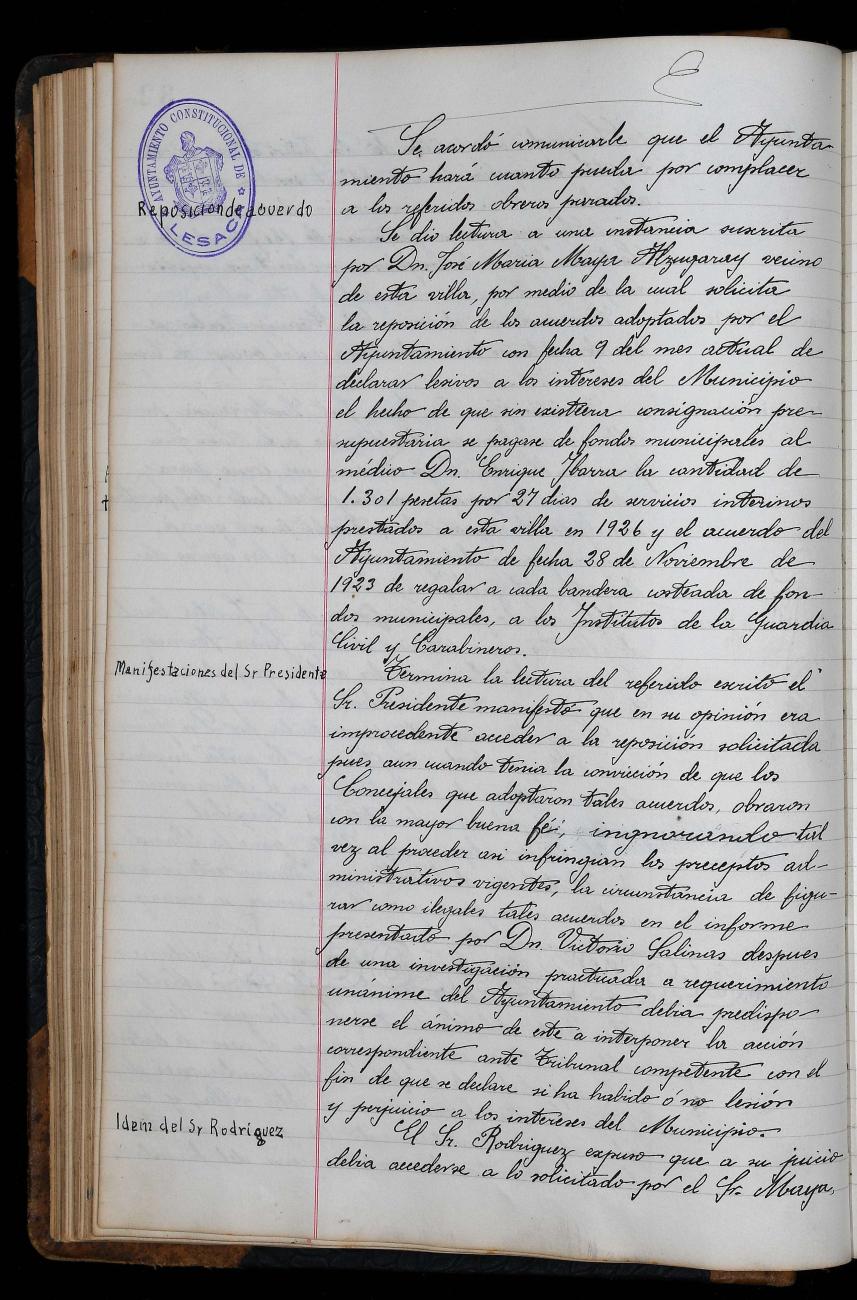 AYUNTAMIENTO CONSTITUCIONAL DE
LESACA
Se acordó comunicarle que el Ayunta-
miento hará cuanto pueda por complacer
a los referidos obreros parados.
Reposición de acuerdo
Se dio lectura a una instancia suscrita
por Dn. José Maria Maya Alzugaray vecino
de esta villa, por medio de la cual solicita
la reposición de los acuerdos adoptados por el
Ayuntamiento con fecha 9 del mes actual de
declarar lesivos a los intereses del Municipio
el hecho de que sin existiera consignación pre-
supuestaria se pagase de fondos municipales al
médico Dn. Enrique Ibarra la cantidad de
1.301 pesetas por 27 dias de servicios interinos
prestados a esta villa en 1926 y el acuerdo del
Ayuntamiento de fecha 28 de Noviembre de
1923 de regalar a cada bandera costeada de fon-
dos municipales, a los Institutos de la Guardia
Civil y Carabineros.
Manifestaciones del Sr Presidente
Termina la lectura del referido escrito el
Sr. Presidente manifestó que en su opinión era
improcedente acceder a la reposición solicitada
pues aun cuando tenia la convicción de que los
Concejales que adoptaron tales acuerdos, obraron
con la mayor buena fé, ingnorando tal
vez al proceder asi infringian los preceptos ad-
ministrativos vigentes, la circunstancia de figu-
rar como ilegales tales acuerdos en el informe
presentado por Dn. Victorio Salinas despues
de una investigación practicada a requerimiento
unánime del Ayuntamiento debia predispo-
nerse el ánimo de este a interponer la acción
correspondiente ante Tribunal competente con el
fin de que se declare si ha habido ó no lesión
y perjuicio a los intereses del Municipio.
Idem del Sr Rodríguez
El Sr. Rodriguez expuso que a su juicio
debia accederse a lo solicitado por el Sr. Maya,